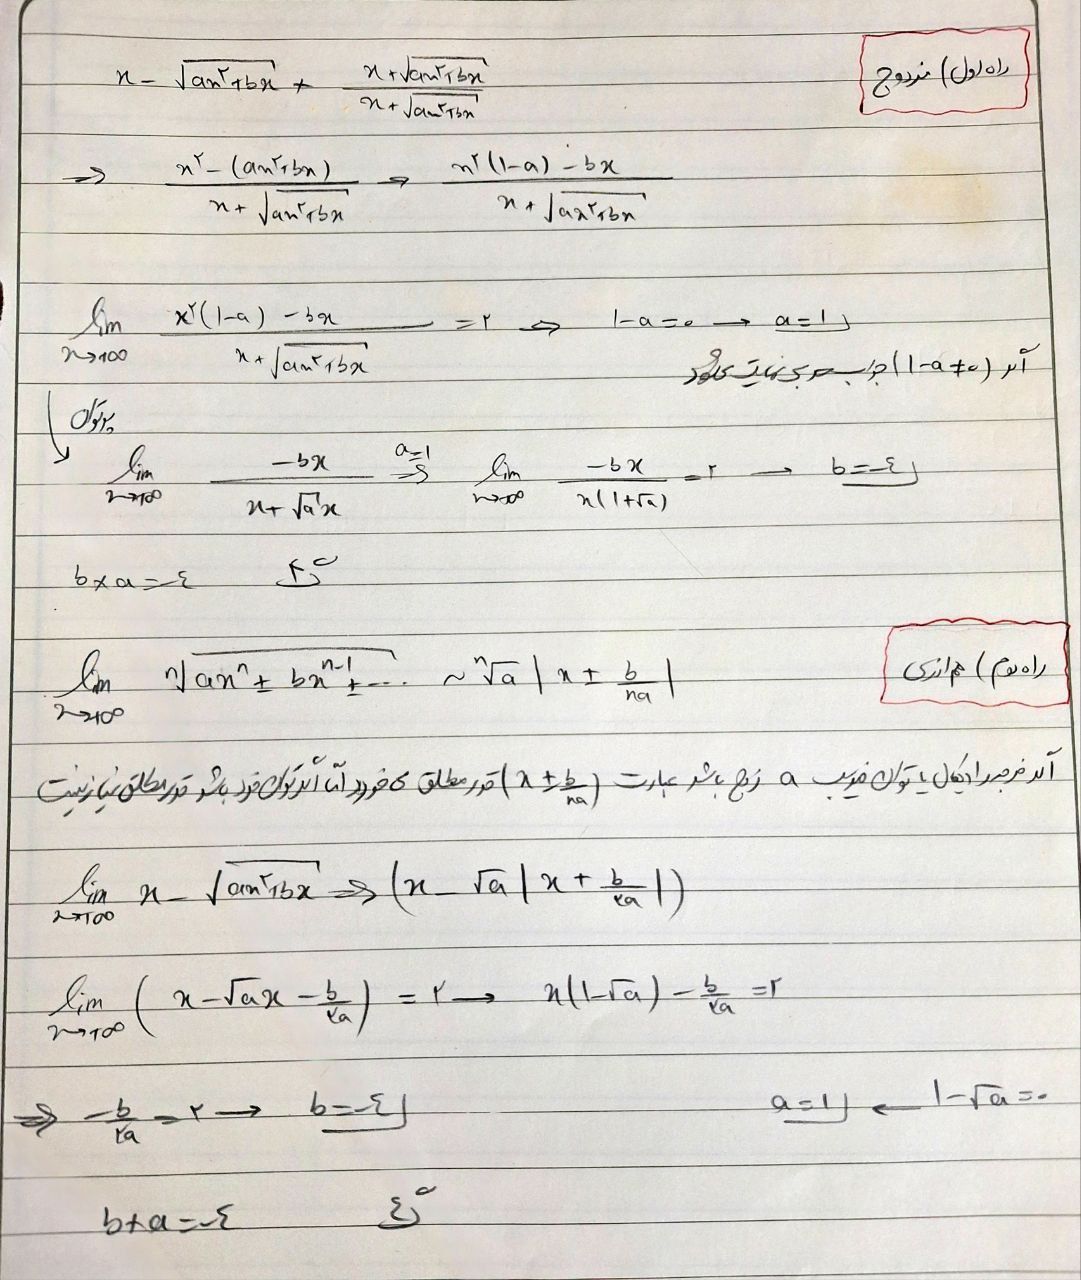 راه اول) مزدوج
x - √(ax² + bx) × (x + √(ax² + bx))/(x + √(ax² + bx))
⇒ (x² - (ax² + bx))/(x + √(ax² + bx)) → (x²(1-a) - bx)/(x + √(ax² + bx))
lim x→+∞ (x²(1-a) - bx)/(x + √(ax² + bx)) = ۲ ⇒ 1-a=۰ → a=1
اگر (1-a≠۰) جواب حد بی نهایت می‌شود
پرتوان
lim x→+∞ (-bx)/(x + √a x) a=1 ⇒ lim x→+∞ (-bx)/(x(1+√a)) = ۲ → b=-٤
b×a=-٤
راه دوم) هم ارزی
lim x→+∞ ⁿ√(axⁿ ± bxⁿ⁻¹ ± ...) ~ ⁿ√a |x ± b/na|
اگر فرجه رادیکال یا توان ضریب a زوج باشد عبارت (x ± b/na) قدر مطلق می‌خورد اما اگر توان فرد باشد قدر مطلق نیاز نیست
lim x→+∞ x - √(ax² + bx) ⇒ (x - √a |x + b/۲a|)
lim x→+∞ (x - √a x - b/۲a) = ۲ → x(1-√a) - b/۲a = ۲
⇒ -b/۲a = ۲ → b=-٤ a=1 ← 1-√a=۰
b×a=-٤